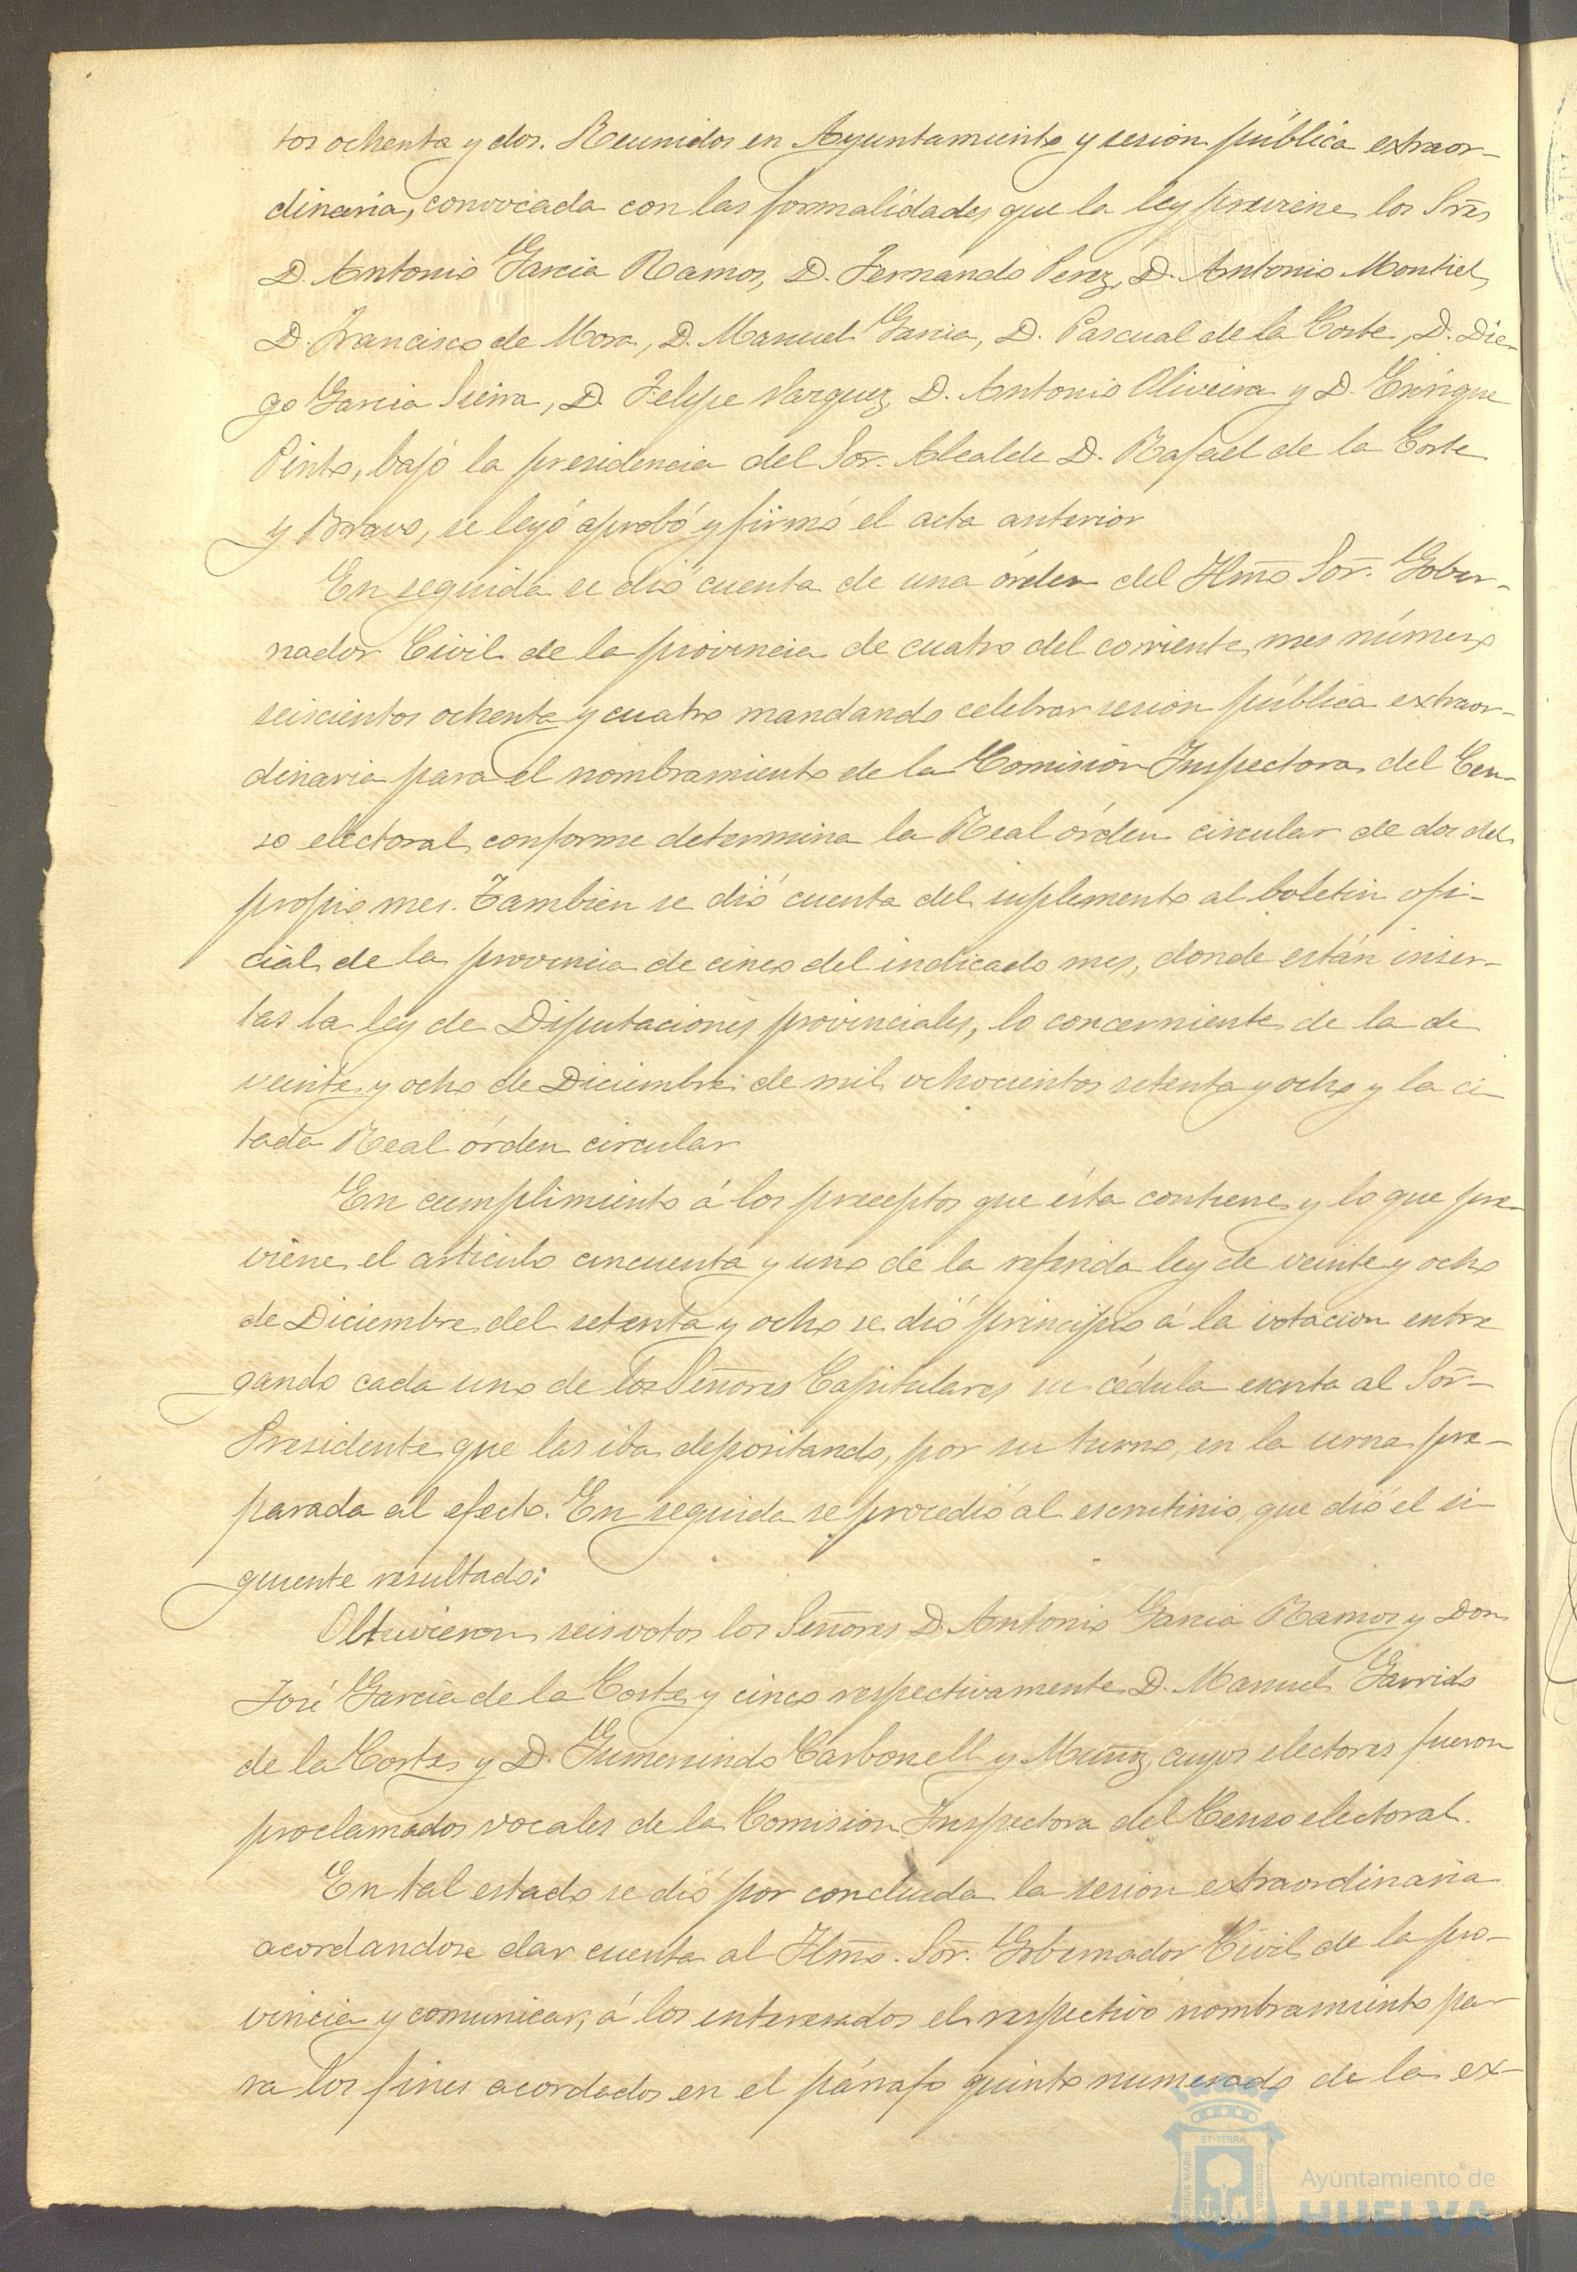 tos ochenta y dos. Reunidos en Ayuntamiento y sesion pública extraor-
dinaria, convocada con las formalidades que la ley previene los Sres
D. Antonio Garcia Ramos, D. Fernando Perez, D. Antonio Montiel,
D. Francisco de Mora, D. Manuel Garcia, D. Pascual de la Corte, D. Die-
go Garcia Sierra, D. Felipe Vazquez, D. Antonio Oliveira y D. Enrique
Pinto, bajó la presidencia del Sor. Alcalde D. Rafael de la Corte
y Bravo, se leyó aprobó y firmó el acta anterior
En seguida se dió cuenta de una órden del Ylmo Sor. Gober-
nador Civil de la provincia de cuatro del corriente mes número
seiscientos ochenta y cuatro mandando celebrar sesion pública extraor-
dinaria para el nombramiento de la Comision Inspectora del Cen-
so electoral, conforme determina la Real órden circular de dos del
propio mes. Tambien se dió cuenta del suplemento al boletin ofi-
cial de la provincia de cinco del indicado mes, donde están inser-
tas la ley de Diputaciones provinciales, lo concerniente de la de
veinte y ocho de Diciembre de mil ochocientos setenta y ocho y la ci-
tada Real órden circular
En cumplimiento á los preceptos que ésta contiene y lo que pre-
viene el articulo cincuenta y uno de la referida ley de veinte y ocho
de Diciembre del setenta y ocho se dió principio á la votacion entre
gando cada uno de los Señores Capitulares su cédula escrita al Sor
Presidente que las iba depositando, por su turno, en la urna pre-
parada al efecto. En seguida se procedió al escrutinio, que dió el si-
guiente resultado:
Obtuvieron seis votos los Señores D. Antonio Garcia Ramos y Don
José Garcia de la Corte y cinco respectivamente D. Manuel Garrido
de la Corte y D. Gumersindo Carbonell y Muñoz, cuyos electores fueron
proclamados vocales de la Comision Inspectora del Censo electoral.
En tal estado se dió por concluida la sesion extraordinaria
acordandose dar cuenta al Ylmo. Sor. Gobernador Civil de la pro-
vincia y comunicar, á los interesados el respectivo nombramiento pa-
ra los fines acordados en el párrafo quinto numerado de la ex-
Ayuntamiento de
HUELVA